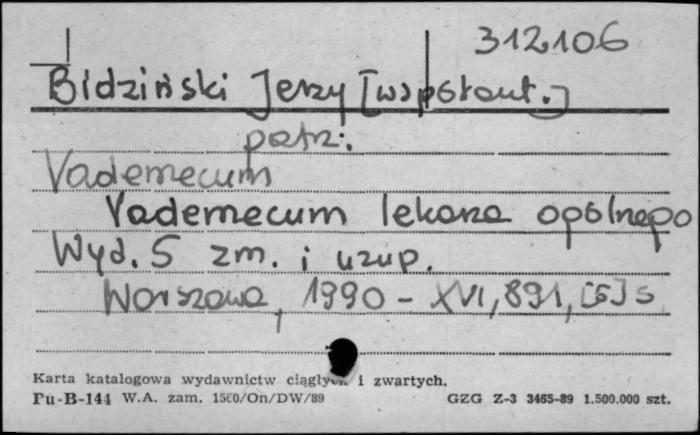 312106
Bidziński Jerzy [współaut.]
patrz:
Vademecum
Vademecum lekarza ogólnego
Wyd. 5 zm. i uzup.
Warszawa, 1990 - XVI, 891, [5] s
Karta katalogowa wydawnictw ciągłych i zwartych.
Pu-B-144 W.A. zam. 1560/On/DW/89 GZG Z-3 3465-89 1.500.000 szt.